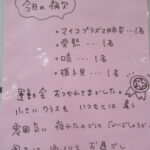 今日の病欠
・マイコプラズマ肺炎…1名
・発熱…1名
・咳…1名
・様子見…1名
運動会 おつかれさまでした。
小さいクラスも いつもとは 違う
雰囲気に 疲れたのでは ないでしょうか。